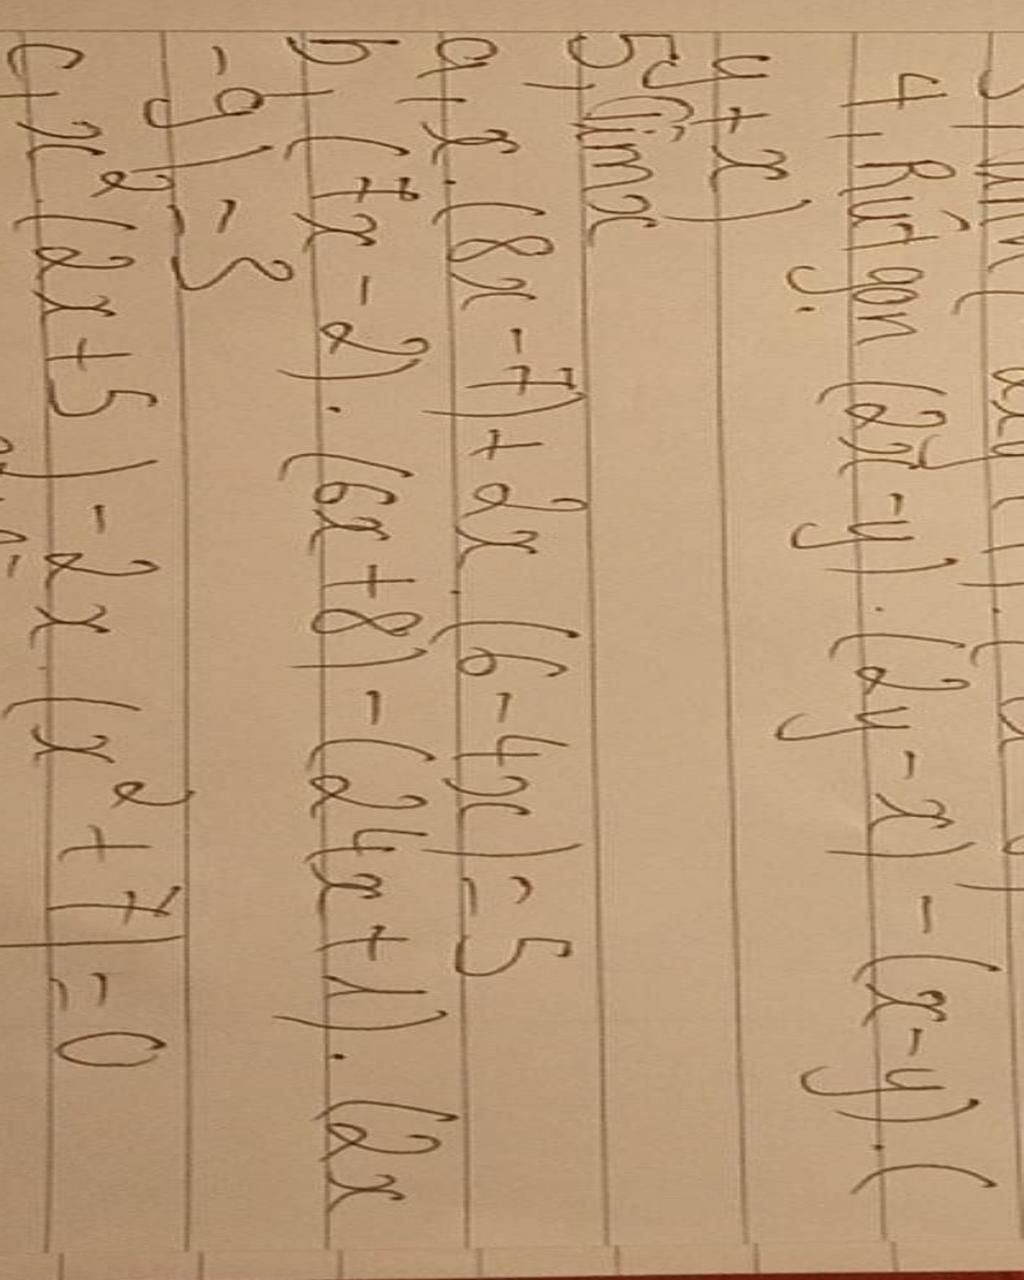 4, Rút gọn (2x - y) . (2y - x) - (x - y) . (
y + x)
5, Tìm x
a, x . (8x - 7) + 2x . (6 - 4x) = 5
b, (7x - 2) . (6x + 8) - (24x + 1) . (2x
- 9) = 3
c, x² (2x + 5) - 2x . (x² + 7) = 0